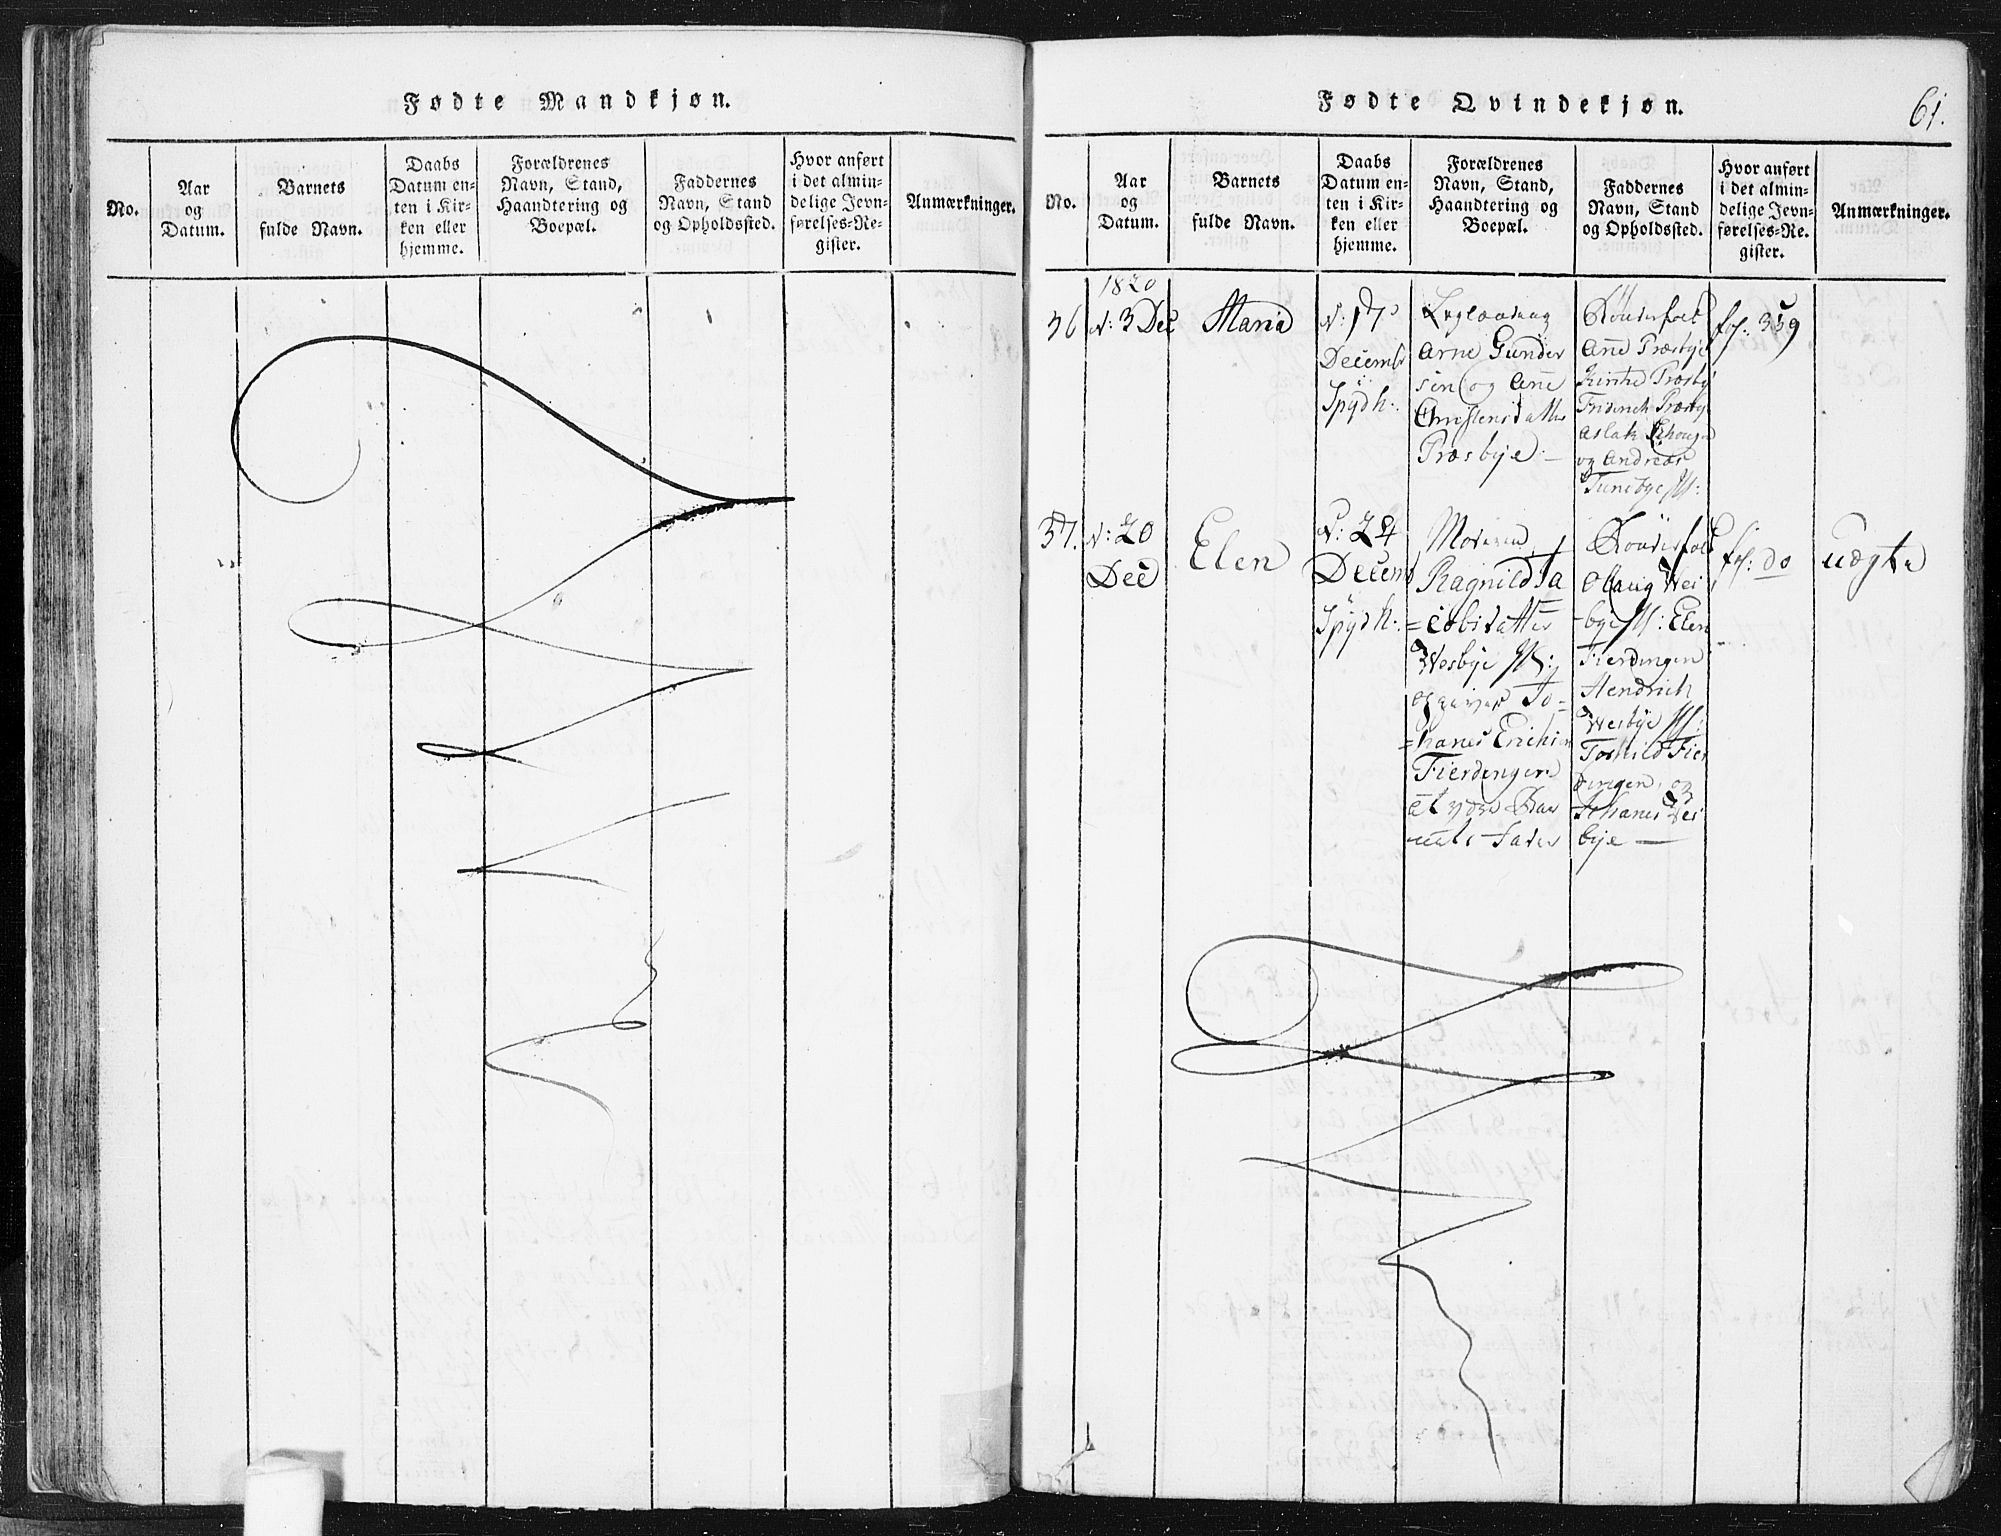 Fødte Mandkjøn.
No.
Aar
og
Datum.
Barnets
fulde Navn.
Daabs
Datum en-
ten i Kir-
ken eller
hjemme.
Forældrenes
Navn, Stand,
Haandtering og
Boepæl.
Faddernes
Navn, Stand
og Opholdssted.
Hvor anført
i det almin-
delige Jevn-
førelses-Re-
gister.
Anmærkninger.
Fødte Qvindekjøn.
61.
No.
Aar
og
Datum.
Barnets
fulde Navn.
Daabs
Datum en-
ten i Kir-
ken eller
hjemme.
Forældrenes
Navn, Stand,
Haandtering og
Boepæl.
Faddernes
Navn, Stand
og Opholdssted.
Hvor anført
i det almin-
delige Jevn-
førelses-Re-
gister.
Anmærkninger.
1820
36
d: 3 Dec
Maria
d: 17
Decembr
Spydh:
Arne Gunder
sen og Ane
Christensdatter
Præsbye
Ane Præsbye
Friderich Præsby
Aslak
og Andreas
Tunebye
fol: 359
37.
d: 20
Dec
Elen
d: 24
Decemb
Spydh:
Moderen
Ragnild Ja
=cobsdatter
Wesbye
opgiver Jo=
=hanes Erichsen
Fierdingen
at være Bar
nets Fader
Olaug Wes
bye Elen
Fierdingen
Hendrich
Wesbye
Torkild Fier
dingen, og
Johanes Wes
bye
fol: do
uægte